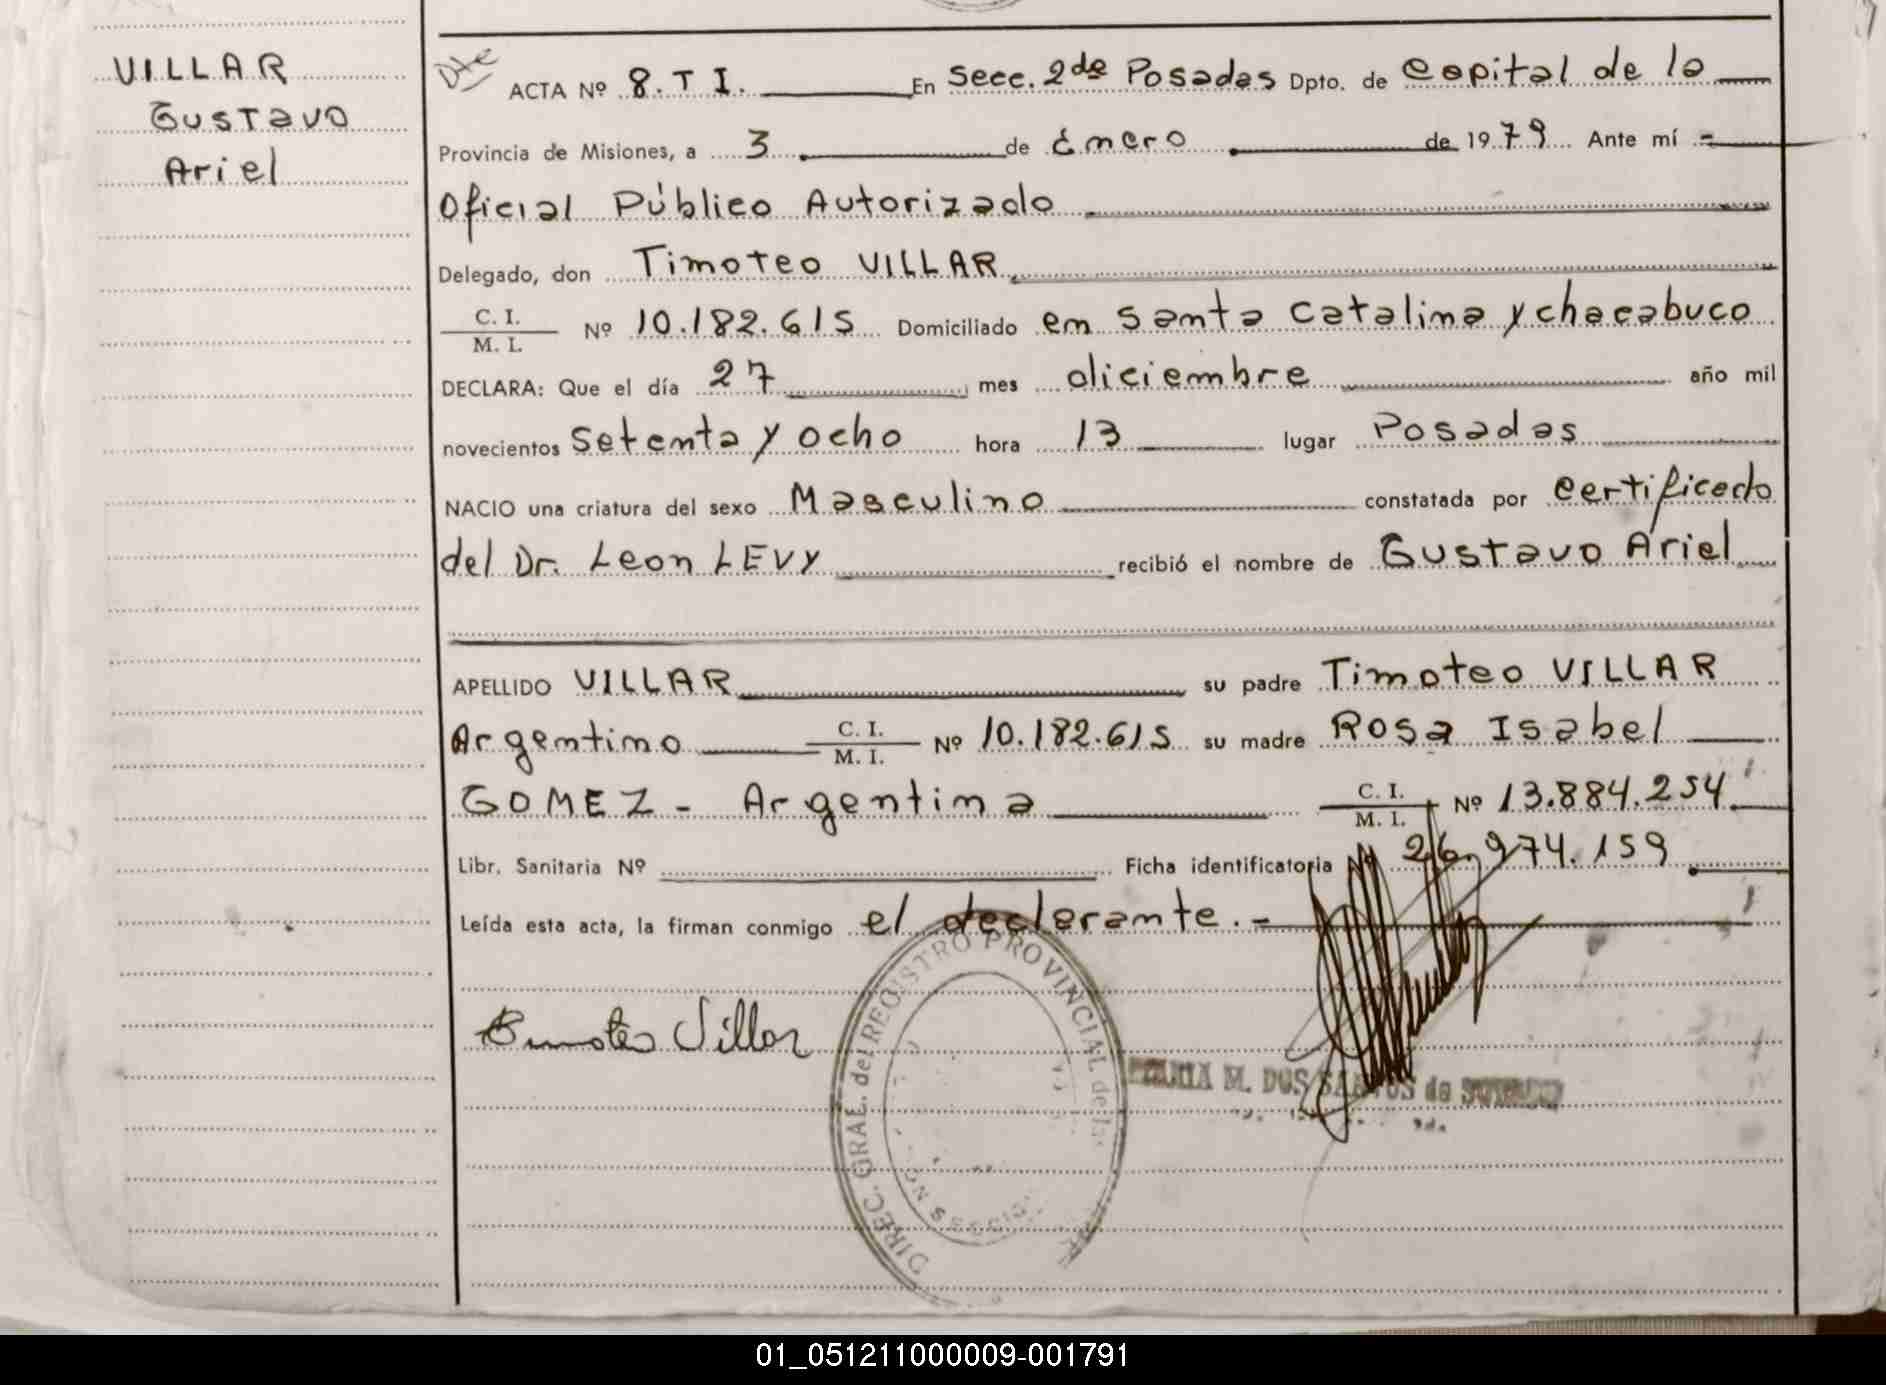 VILLAR
Gustavo
Ariel
Dte
ACTA Nº 8. T I. En Secc. 2da Posadas Dpto. de Capital de la
Provincia de Misiones, a 3 de Enero de 1979 Ante mí -
Oficial Público Autorizado
Delegado, don Timoteo VILLAR
C. I.
M. I.
Nº 10.182.615 Domiciliado en Santa Catalina y chacabuco
DECLARA: Que el día 27 mes diciembre año mil
novecientos Setenta y ocho hora 13 lugar Posadas
NACIO una criatura del sexo Masculino constatada por certificado
del Dr. Leon LEVY recibió el nombre de Gustavo Ariel
APELLIDO VILLAR su padre Timoteo VILLAR
Argentino C. I. M. I. Nº 10.182.615 su madre Rosa Isabel
GOMEZ - Argentina C. I. M. I. Nº 13.884.254
Libr. Sanitaria Nº Ficha identificatoria Nº 26.974.159
Leída esta acta, la firman conmigo el declarante. -
Timoteo Villar
DIREC. GRAL. del REGISTRO PROVINCIAL de las
M. DOS SANTOS de
01_051211000009-001791